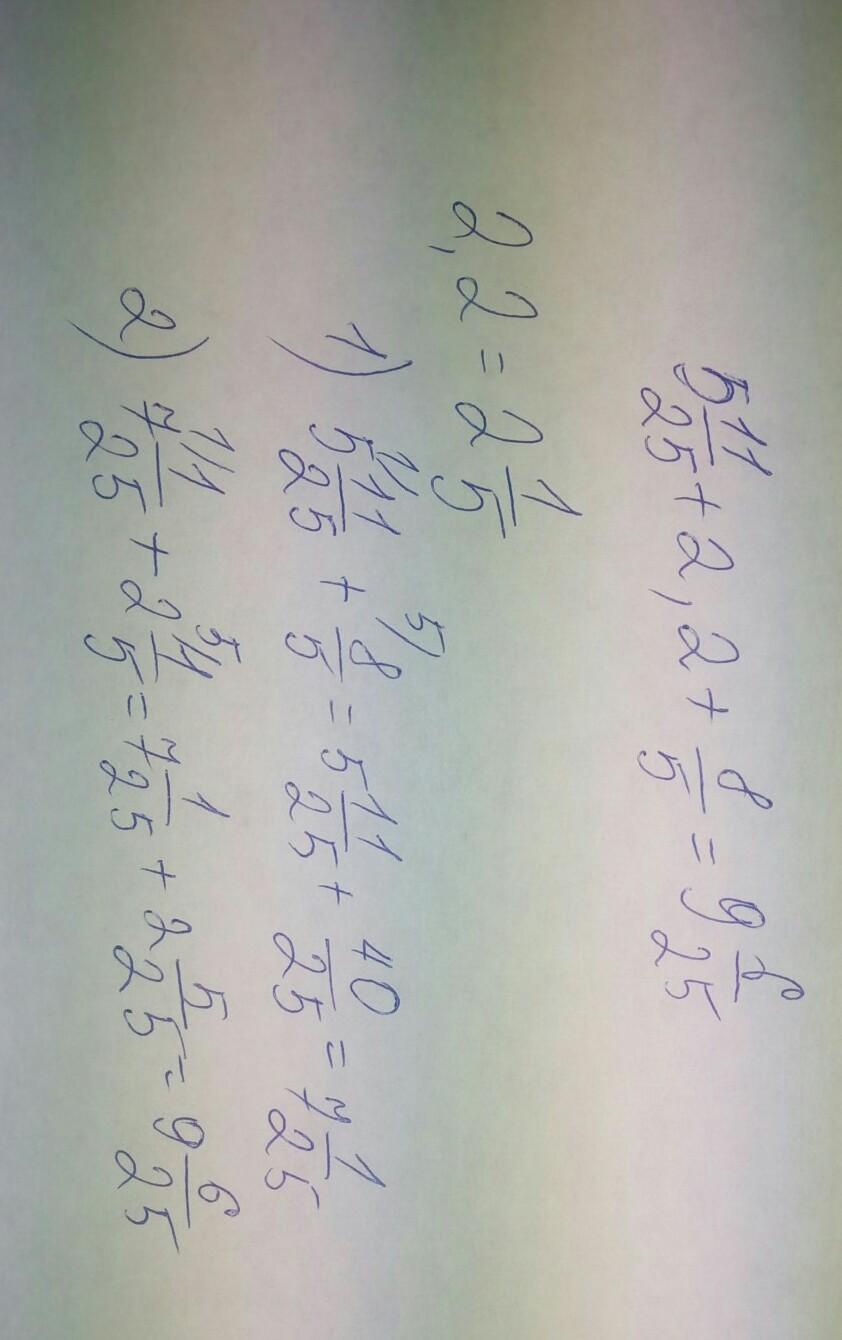 5 11/25 + 2,2 + 8/5 = 9 6/25
2,2 = 2 1/5
1) 5 11/25 + 8/5 = 5 11/25 + 40/25 = 7 1/25
2) 7 1/25 + 2 1/5 = 7 1/25 + 2 5/25 = 9 6/25